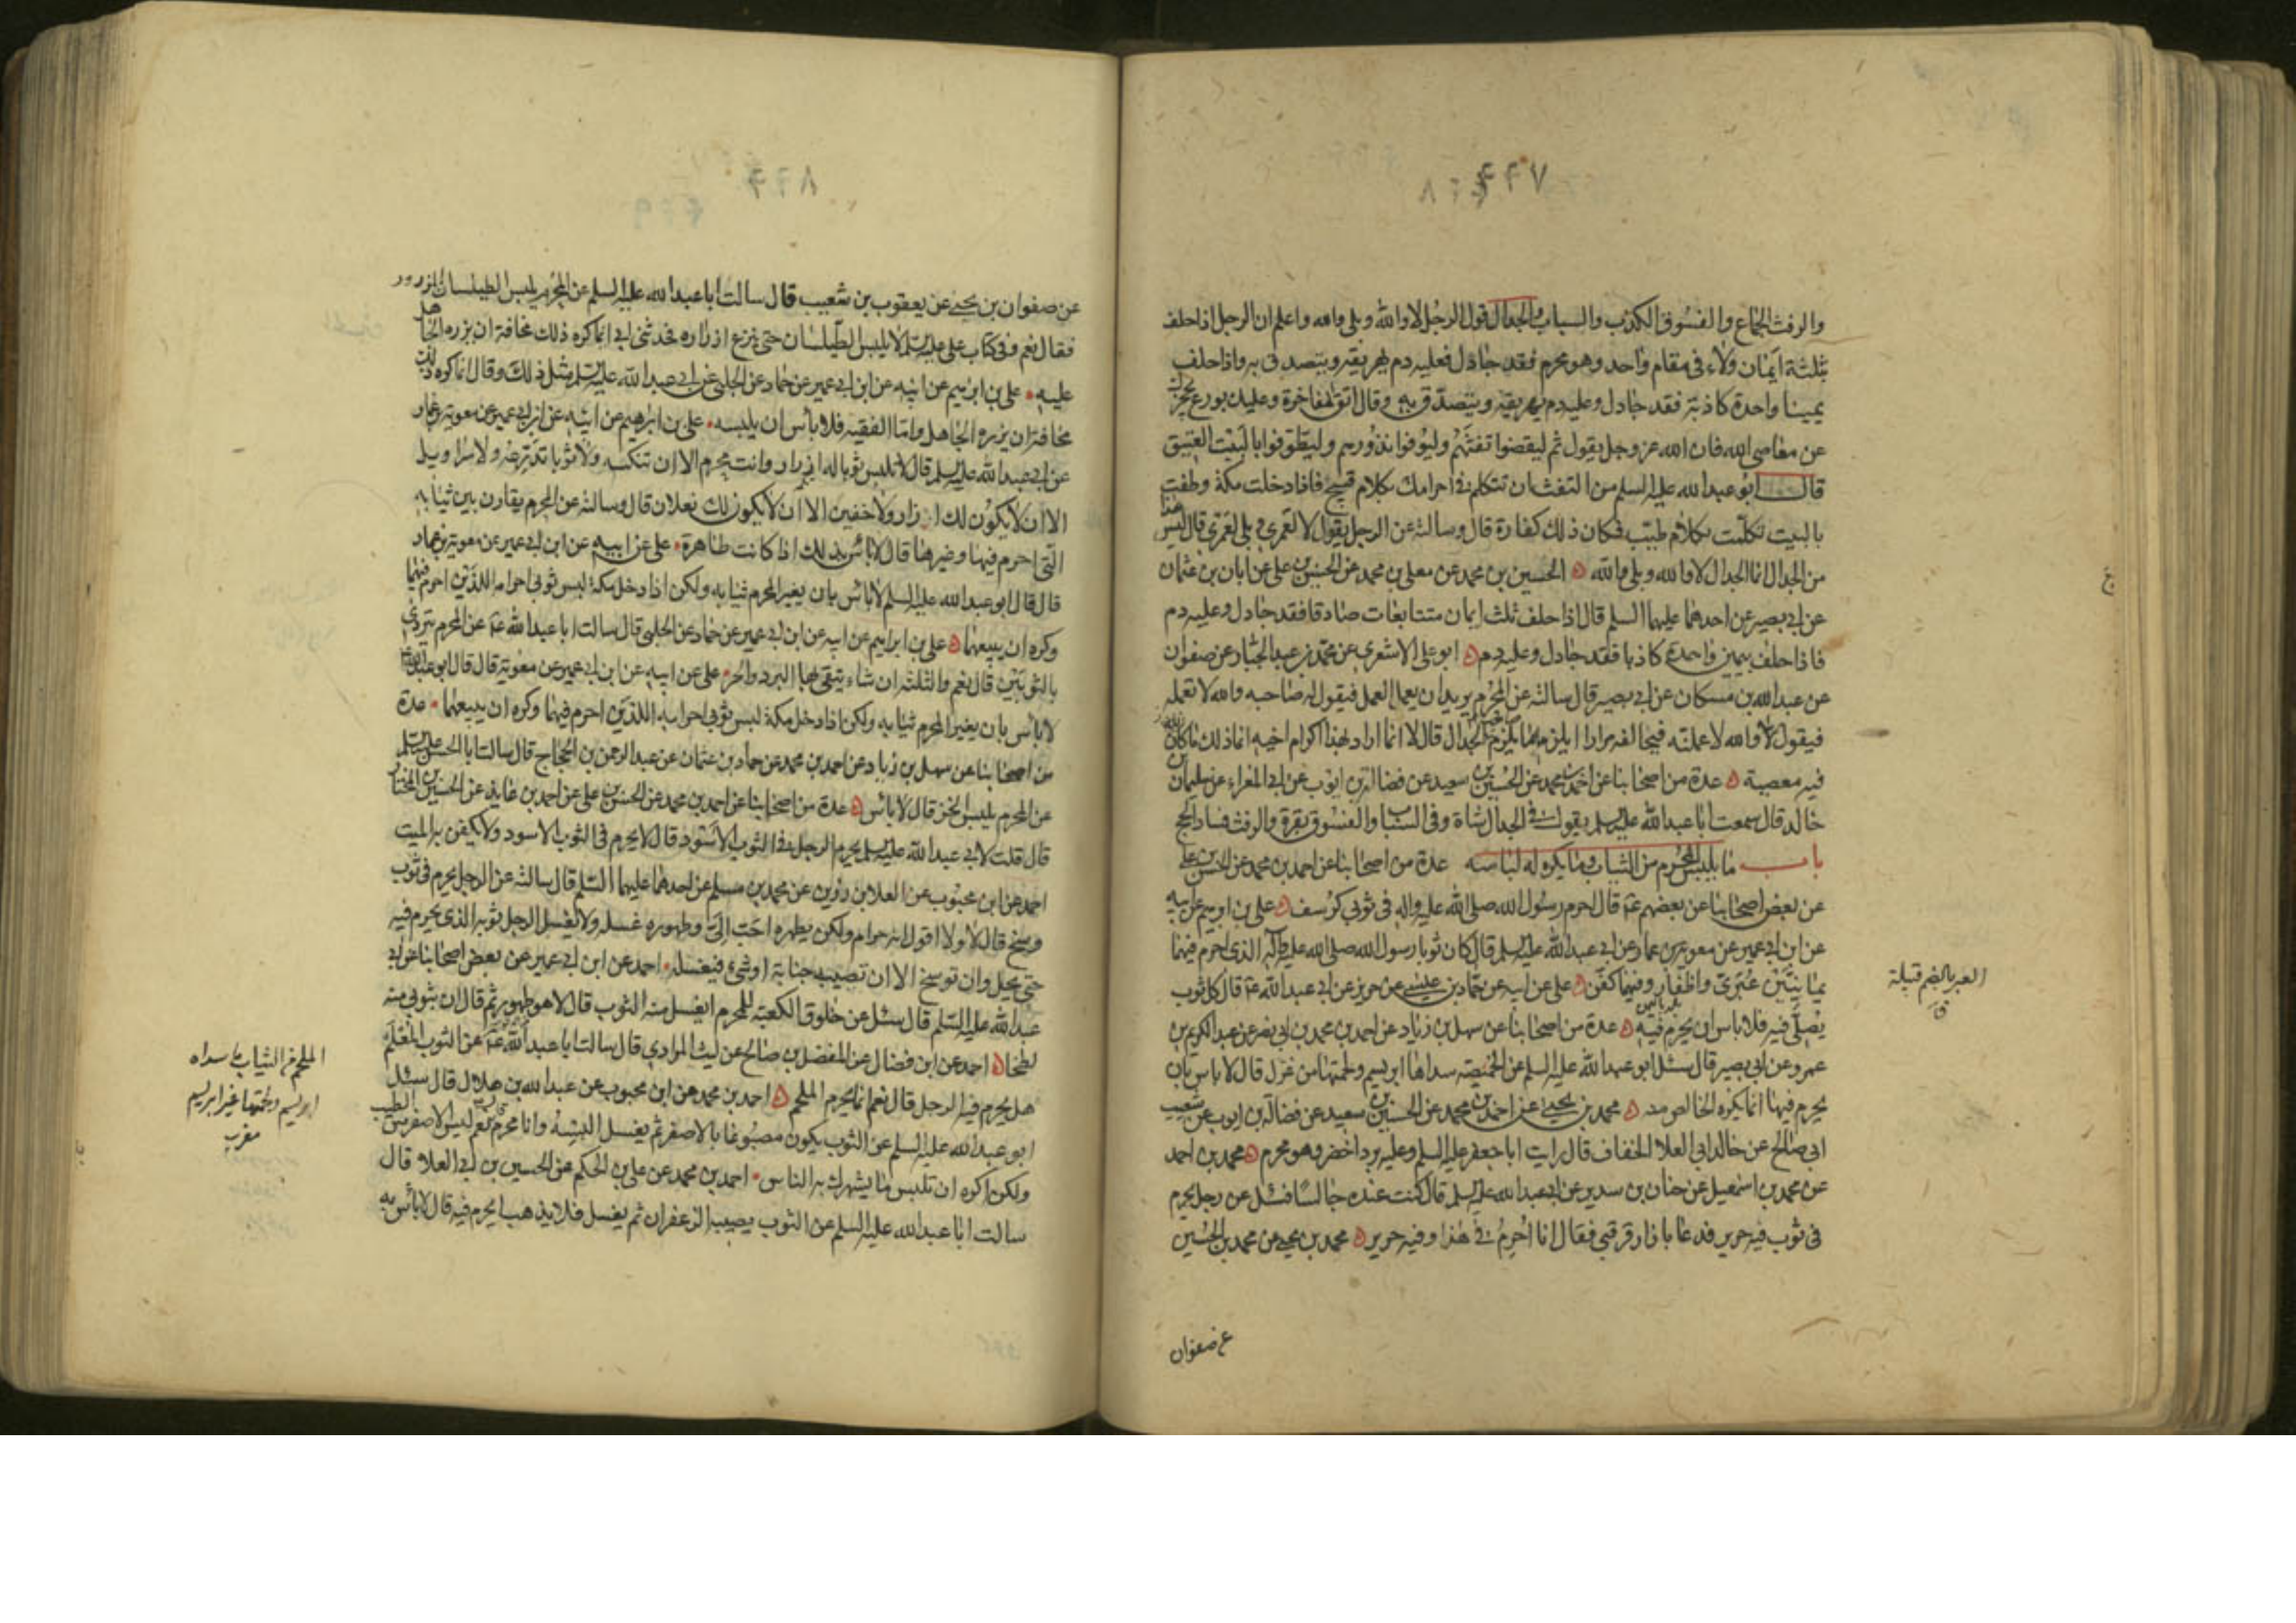 والرفث الجماع والفسوق الكذب والسباب والجدال قول الرجل لا والله وبلى والله واعلم ان الرجل اذا حلف
بثلثة ايمان ولاء في مقام واحد وهو محرم فقد جادل فعليه دم يهريقه ويتصدق به واذا حلف
يمينا واحدة كاذبة فقد جادل وعليه دم يهريقه ويتصدق به وقال اتق المفاخرة وعليك بورع يحجزك
عن معاصي الله فان الله عز وجل يقول ثم ليقضوا تفثهم وليوفوا نذورهم وليطوفوا بالبيت العتيق
قال ابو عبد الله عليه السلم من التفث ان تتكلم في احرامك بكلام قبيح فاذا دخلت مكة وطفت
بالبيت تكلمت بكلام طيب فكان ذلك كفارة قال وسالته عن الرجل يقول لا لعمري وبلى لعمري قال ليس هذا
من الجدال انما الجدال لا والله وبلى والله الحسين بن محمد عن معلى بن محمد عن الحسن بن علي عن ابان بن عثمان
عن ابي بصير عن احدهما عليهما السلم قال اذا حلف ثلث ايمان متتابعات صادقا فقد جادل وعليه دم
فاذا حلف بيمين واحدة كاذبا فقد جادل وعليه دم ابو علي الاشعري عن محمد بن عبد الجبار عن صفوان
عن عبد الله بن مسكان عن ابي بصير قال سالته عن المحرم يريد ان يعمل العمل فيقول له صاحبه والله لا تعمله
فيقول والله لاعملنه فيحالفه مرارا ايلزمه ما يلزم الجدال قال لا انما اراد بهذا اكرام اخيه انما ذلك ما كان
فيه معصية عدة من اصحابنا عن احمد بن محمد عن الحسين بن سعيد عن فضالة بن ايوب عن ابي المغراء عن سليمان بن
خالد قال سمعت ابا عبد الله عليه السلم يقول في الجدال شاة وفي السباب والفسوق بقرة والرفث فساد الحج
باب ما يلبس المحرم من الثياب وما يكره له لباسه عدة من اصحابنا عن احمد بن محمد عن الحسن بن علي
عن بعض اصحابنا عن بعضهم ع قال احرم رسول الله صلى الله عليه واله في ثوبي كرسف علي بن ابرهيم عن ابيه
عن ابن ابي عمير عن معوية بن عمار عن ابي عبد الله عليه السلم قال كان ثوبا رسول الله صلى الله عليه واله الذي احرم فيهما
يمانيين عبري واظفار وفيهما كفن علي عن ابيه عن حماد بن عيسى عن حريز عن ابي عبد الله ع قال كل ثوب
يصلى فيه فلا باس ان يحرم فيه عدة من اصحابنا عن سهل بن زياد عن احمد بن محمد بن ابي نصر عن عبد الكريم بن
عمرو عن ابي بصير قال سئل ابو عبد الله عليه السلم عن الخميصة سداها ابريسم ولحمتها من غزل قال لا باس بان
يحرم فيها انما يكره الخالص منه محمد بن يحيى عن احمد بن محمد عن الحسين بن سعيد عن فضالة بن ايوب عن شعيب
ابي صالح عن خالد ابي العلا الخفاف قال رايت ابا جعفر عليه السلم وعليه برد اخضر وهو محرم محمد بن احمد
عن محمد بن اسمعيل عن حنان بن سدير عن ابي عبد الله عليه السلم قال كنت عنده جالسا فسئل عن رجل يحرم
في ثوب فيه حرير فدعا بازار قرقبي فقال انا احرم في هذا وفيه حرير محمد بن يحيى عن محمد بن الحسين
عن صفوان
العبر بالضم قبيلة
ق
عن صفوان بن يحيى عن يعقوب بن شعيب قال سالت ابا عبد الله عليه السلم عن المحرم يلبس الطيلسان المزرور
فقال نعم وفي كتاب علي عليه السلم لا يلبس الطيلسان حتى ينزع ازراره فحدثني ابي انما كره ذلك مخافة ان يزره الجاهل
عليه علي بن ابرهيم عن ابيه عن ابن ابي عمير عن حماد عن الحلبي عن ابي عبد الله عليه السلم مثل ذلك وقال انما كره ذلك
مخافة ان يزره الجاهل واما الفقيه فلا باس ان يلبسه علي بن ابرهيم عن ابيه عن ابن ابي عمير عن معوية بن عمار
عن ابي عبد الله عليه السلم قال لا تلبس ثوبا له ازرار وانت محرم الا ان تنكسه ولا ثوبا تدرعه ولا سراويل
الا ان لا يكون لك ازار ولا خفين الا ان لا يكون لك نعلان قال وسالته عن المحرم يقارن بين ثيابه
التي احرم فيها وغيرها قال لا باس بذلك اذا كانت طاهرة علي عن ابيه عن ابن ابي عمير عن معوية بن عمار
قال قال ابو عبد الله عليه السلم لا باس بان يغير المحرم ثيابه ولكن اذا دخل مكة لبس ثوبي احرامه اللذين احرم فيهما
وكره ان يبيعهما علي بن ابراهيم عن ابيه عن ابن ابي عمير عن حماد عن الحلبي قال سالت ابا عبد الله ع عن المحرم يتردى
بالثوبين قال نعم والثلثة ان شاء يتقي بها البرد والحر علي عن ابيه عن ابن ابي عمير عن معوية قال قال ابو عبد الله
لا باس بان يغير المحرم ثيابه ولكن اذا دخل مكة لبس ثوبي احرامه اللذين احرم فيهما وكره ان يبيعهما عدة
من اصحابنا عن سهل بن زياد عن احمد بن محمد عن حماد بن عثمان عن عبد الرحمن بن الحجاج قال سالت ابا الحسن عليه السلم
عن المحرم يلبس الخز قال لا باس عدة من اصحابنا عن احمد بن محمد عن الحسن بن علي عن احمد بن عايذ عن الحسين بن المختار
قال قلت لابي عبد الله عليه السلم يحرم الرجل في الثوب الاسود قال لا يحرم في الثوب الاسود ولا يكفن به الميت
احمد عن ابن محبوب عن العلا بن رزين عن محمد بن مسلم عن احدهما عليهما السلم قال سالته عن الرجل يحرم في ثوب
وسخ قال لا ولا اقول انه حرام ولكن يطهره احب الي وطهوره غسله ولا يغسل الرجل ثوبه الذي يحرم فيه
حتى يحل وان توسخ الا ان تصيبه جنابة او شيء فيغسله احمد عن ابن ابي عمير عن بعض اصحابنا عن ابي
عبد الله عليه السلم قال سئل عن خلوق الكعبة للمحرم ايغسل منه الثوب قال لا هو طهور ثم قال ان بثوبي منه
لطخا احمد عن ابن فضال عن المفضل بن صالح عن ليث المرادي قال سالت ابا عبد الله ع عن الثوب المعلم
هل يحرم فيه الرجل قال نعم انما يحرم الملحم احمد بن محمد عن ابن محبوب عن عبد الله بن هلال قال سئل
ابو عبد الله عليه السلم عن الثوب يكون مصبوغا بالاصفر ثم يغسل البسه وانا محرم قال نعم ليس الاصفر من الطيب
ولكن اكره ان تلبس ما يشهرك به الناس احمد بن محمد عن علي بن الحكم عن الحسين بن ابي العلاء قال
سالت ابا عبد الله عليه السلم عن الثوب يصيبه الزعفران ثم يغسل فلا يذهب ايحرم فيه قال لا باس به
الملحم من الثياب ما سداه
ابريسم ولحمتها غير ابريسم
مغرب